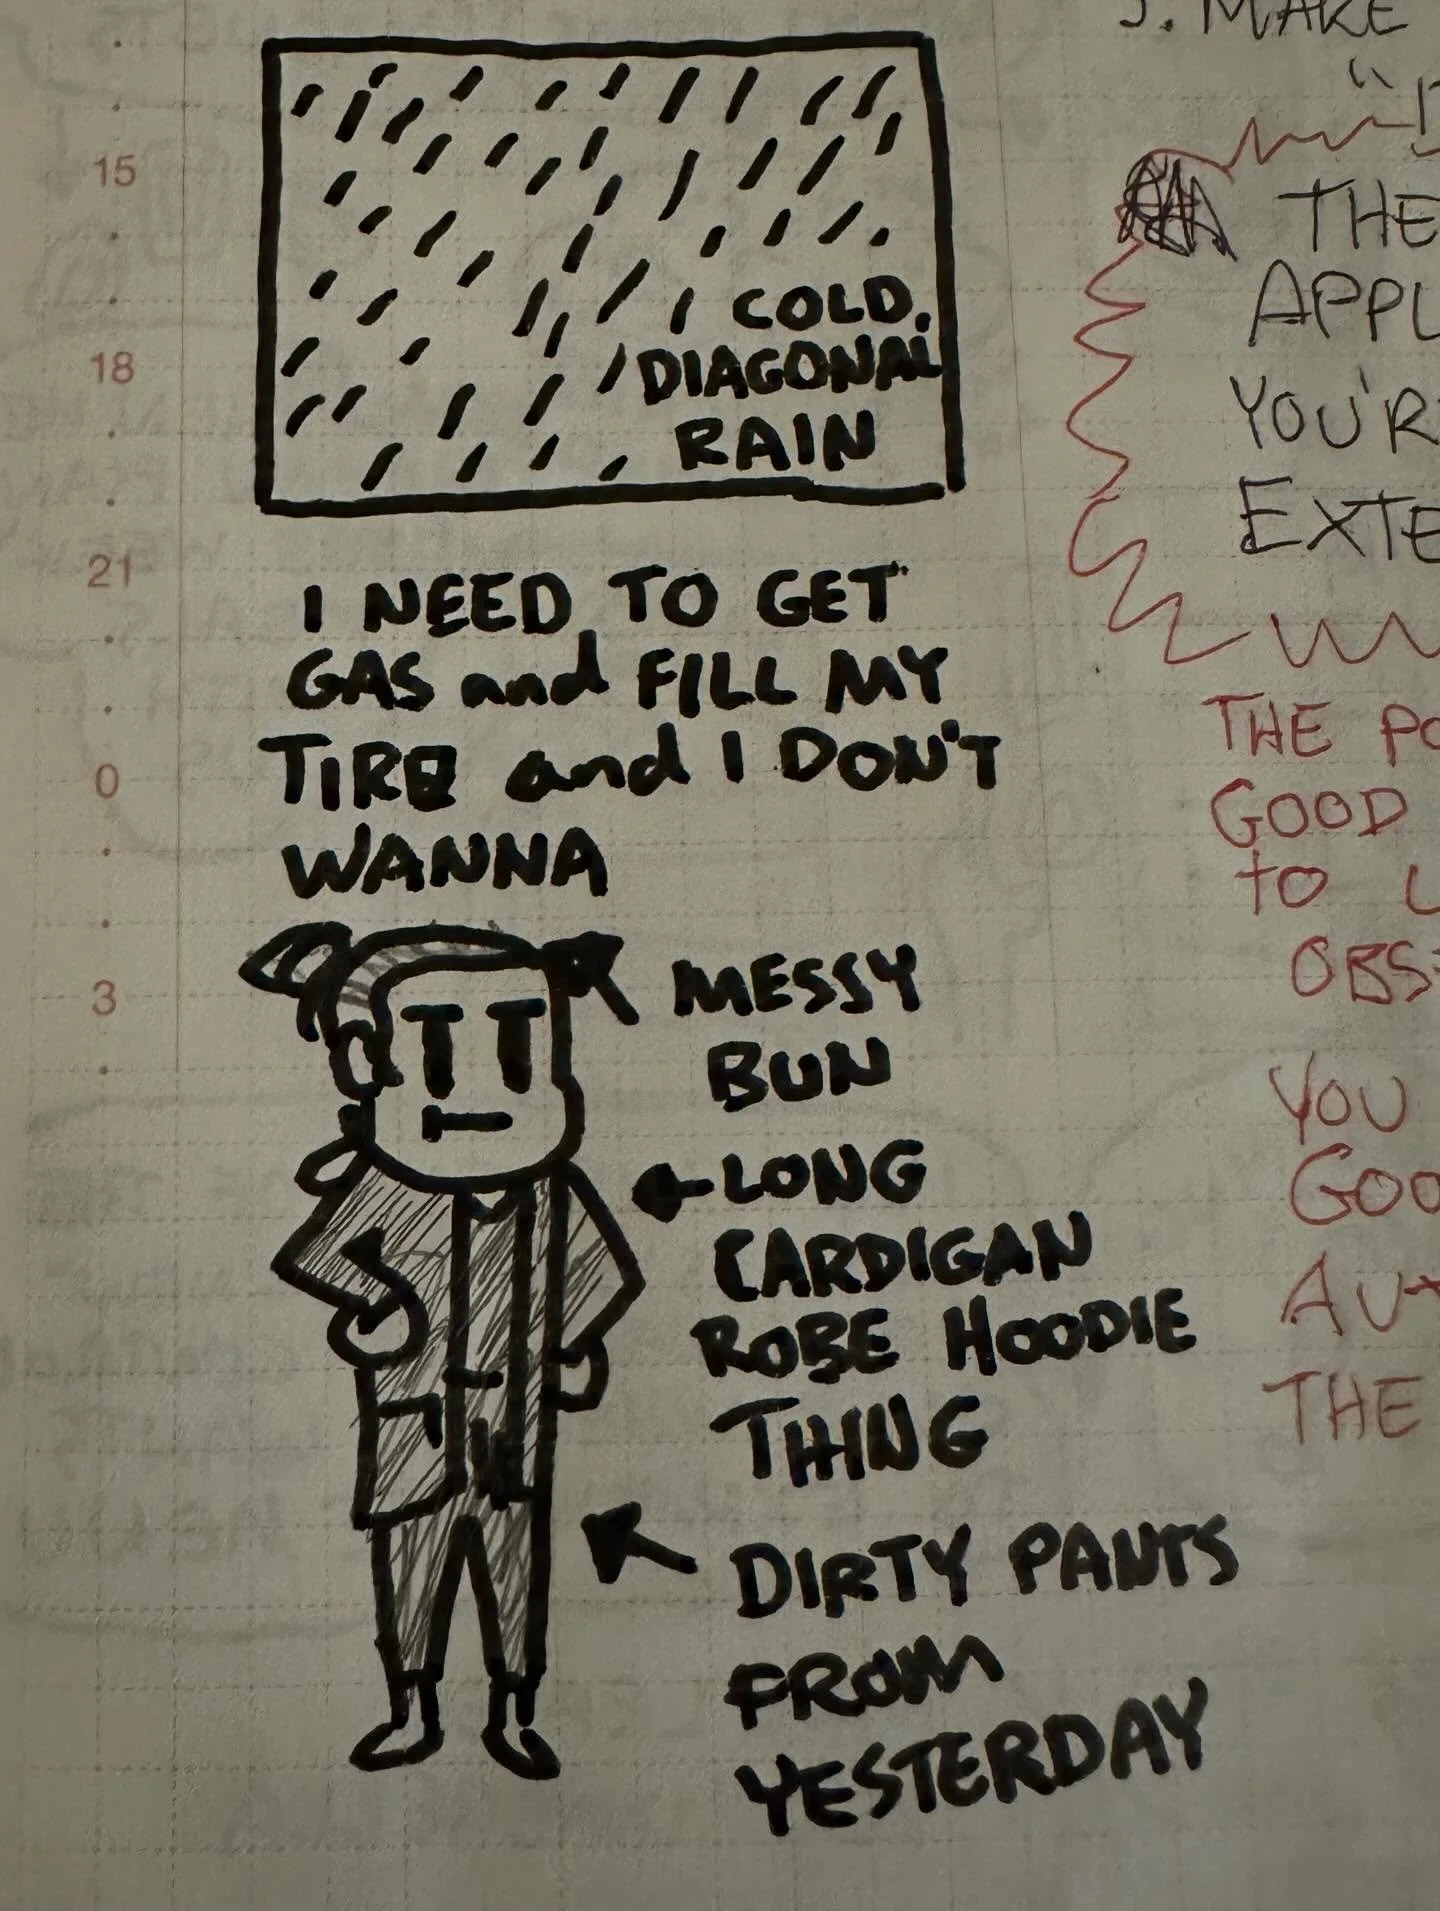 COLD,
DIAGONAL
RAIN
I NEED TO GET
GAS and FILL MY
TIRE and I DON'T
WANNA
MESSY
BUN
LONG
CARDIGAN
ROBE HOODIE
THING
DIRTY PANTS
FROM
YESTERDAY
15
18
21
0
3
J. MAKE
THE
APPL
YOU'R
EXTE
THE PO
GOOD
TO L
OBS
YOU
GOO
AUT
THE